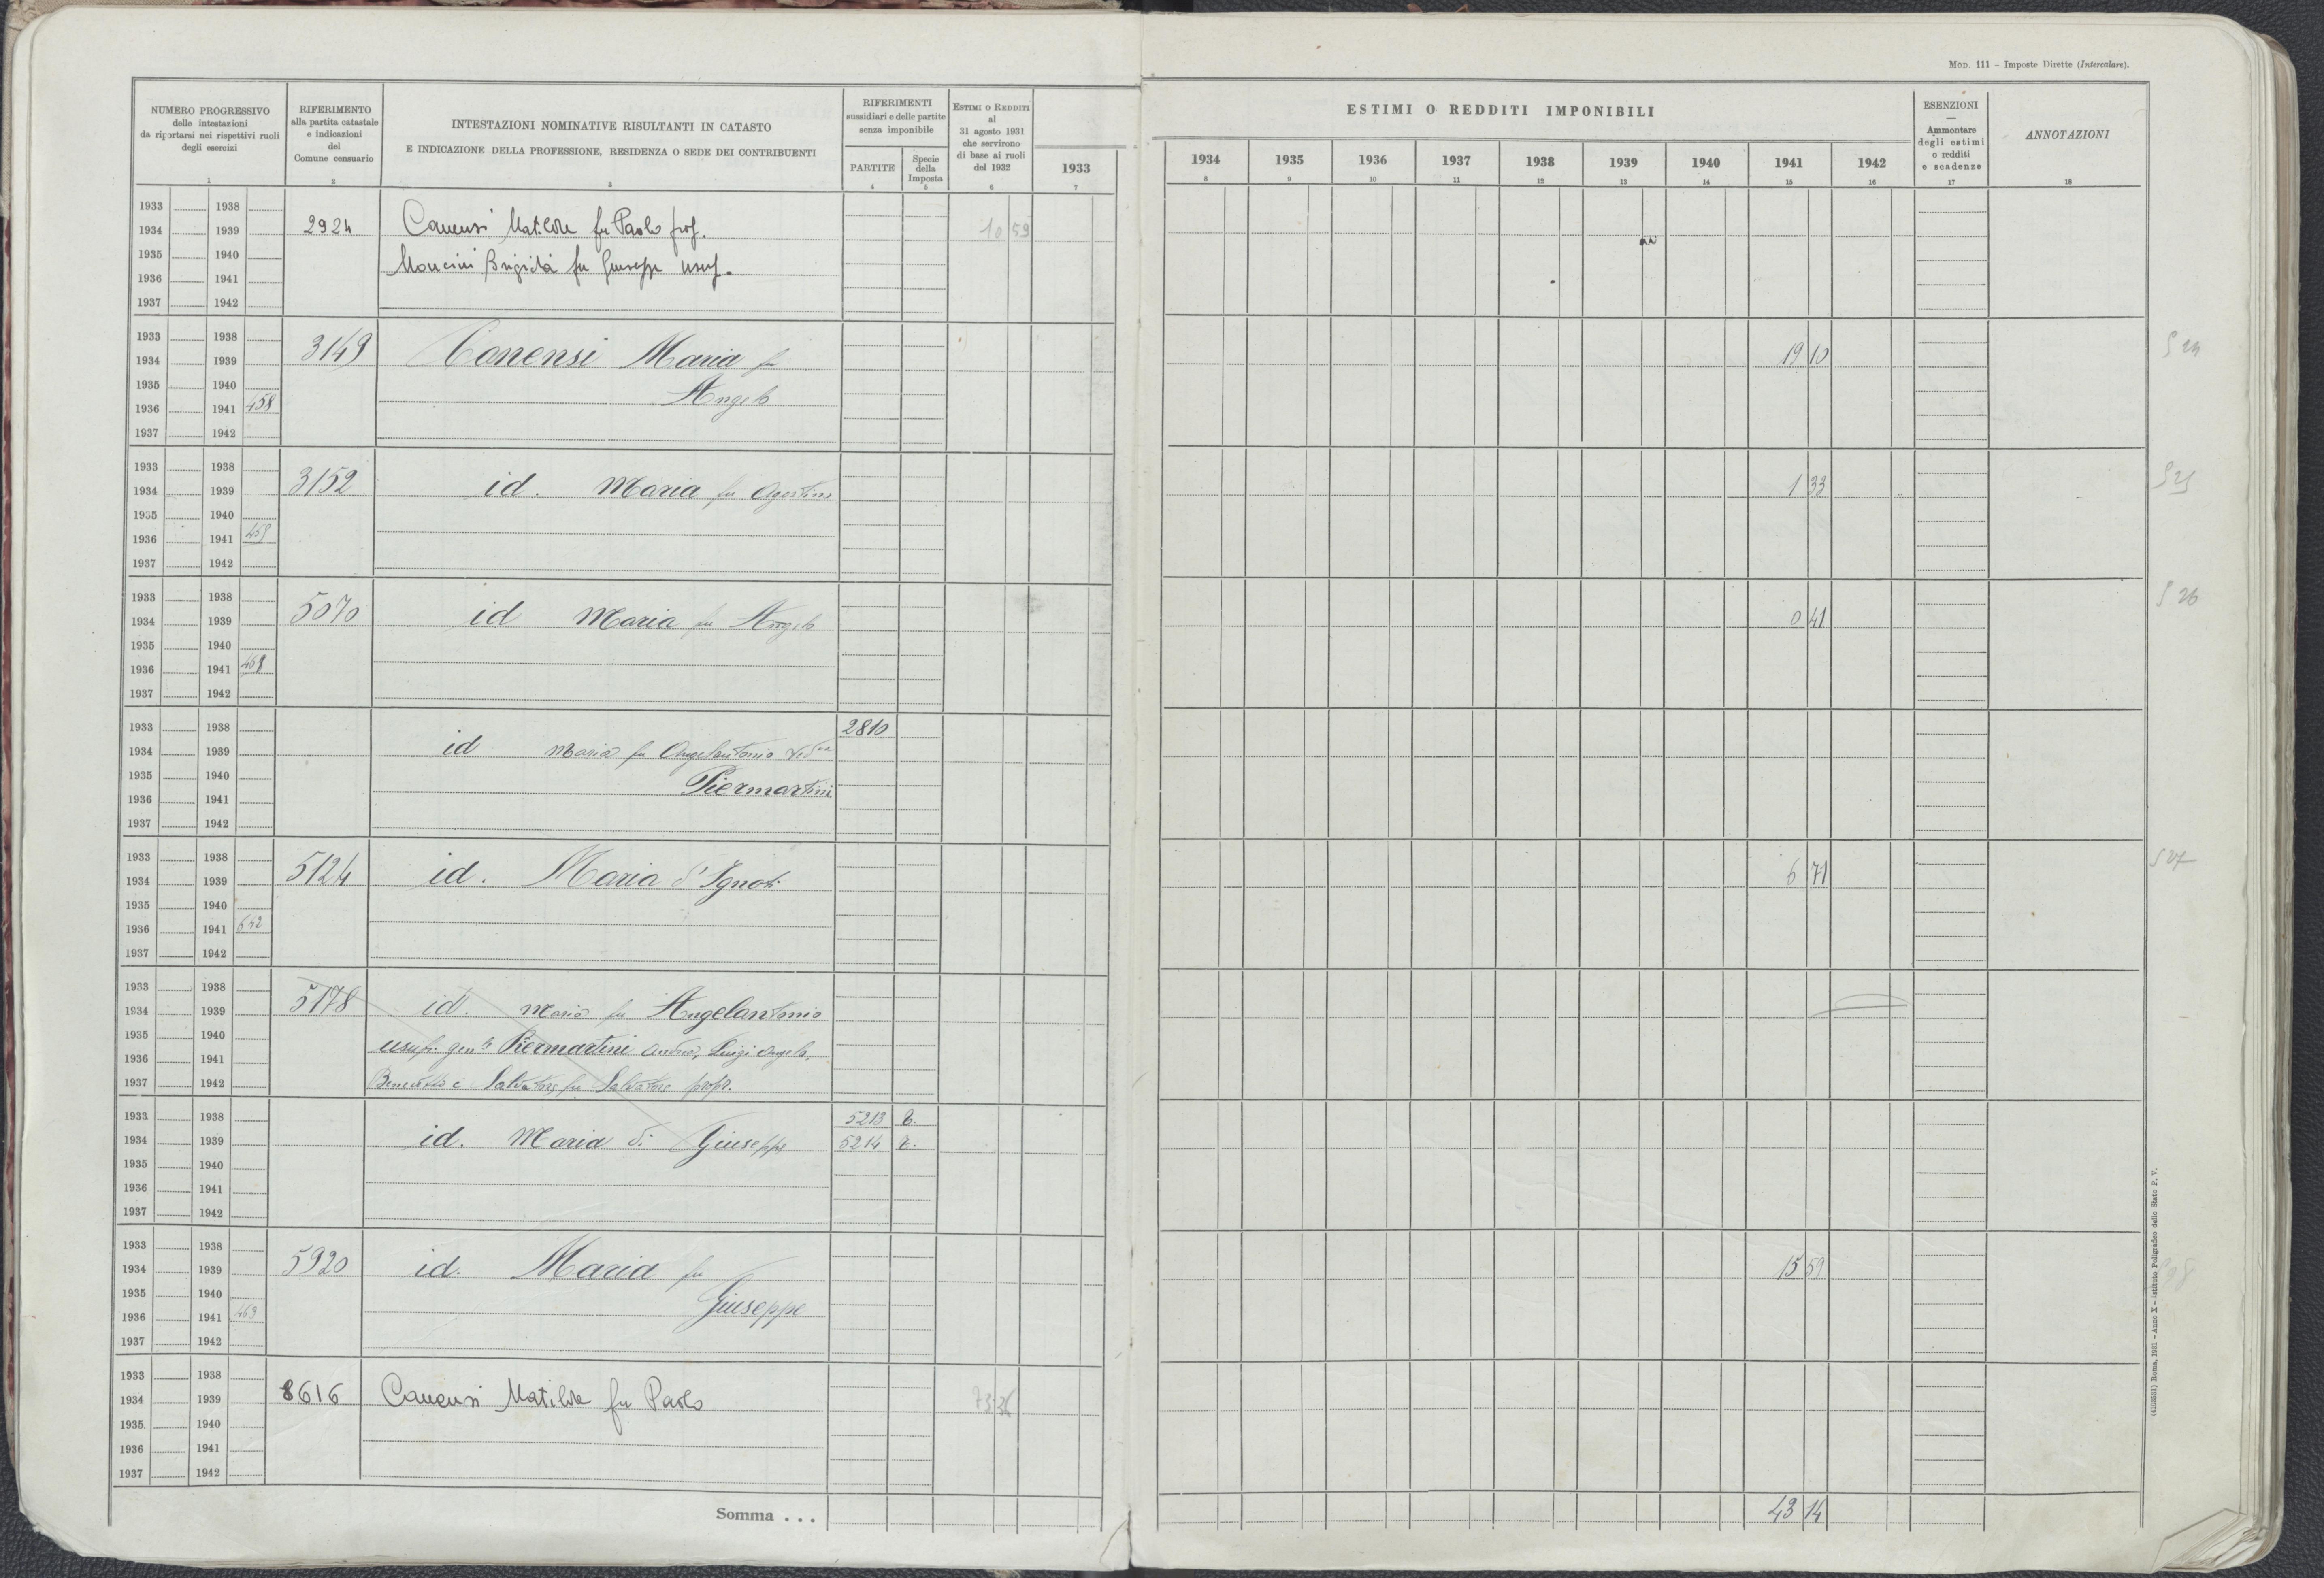 Mod. 111 – Imposte Dirette (Intercalare).
NUMERO PROGRESSIVO
delle intestazioni
da riportarsi nei rispettivi ruoli
degli esercizi
1
RIFERIMENTO
alla partita catastale
e indicazioni
del
Comune censuario
2
INTESTAZIONI NOMINATIVE RISULTANTI IN CATASTO
E INDICAZIONE DELLA PROFESSIONE, RESIDENZA O SEDE DEI CONTRIBUENTI
3
RIFERIMENTI
sussidiari e delle partite
senza imponibile
PARTITE
4
Specie
della
Imposta
5
ESTIMI O REDDITI
al
31 agosto 1931
che servirono
di base ai ruoli
del 1932
6
ESTIMI O REDDITI IMPONIBILI
1933 1934 1935 1936 1937 1938 1939 1940 1941 1942
7 8 9 10 11 12 13 14 15 16
ESENZIONI
—
Ammontare
degli estimi
o redditi
e scadenze
17
ANNOTAZIONI
18
1933 1938
1934 1939 2924 Canensi Matilde fu Paolo prop. 10 59
1935 1940 Mancini Brigida fu Giuseppe usuf.
1936 1941
1937 1942
1933 1938
1934 1939 3149 Canensi Maria fu 19 10
1935 1940 Angelo
1936 1941 458
1937 1942
1933 1938
1934 1939 3152 id. Maria fu Agostino 1 33
1935 1940
1936 1941 459
1937 1942
1933 1938
1934 1939 5070 id Maria fu Angelo 0 41
1935 1940
1936 1941
1937 1942
1933 1938 2810
1934 1939 id Maria fu Angelantonio
1935 1940 Piermartini
1936 1941
1937 1942
1933 1938
1934 1939 5124 id. Maria d'Ignoti 6 71
1935 1940
1936 1941 642
1937 1942
1933 1938
1934 1939 5178 id. Maria fu Angelantonio
1935 1940 usufr. gen.le Piermartini Andrea, Luigi Angelo,
1936 1941 Benedetto e Salvatore fu Salvatore propr.
1937 1942
1933 1938 5213
1934 1939 id. Maria di Giuseppe 5214
1935 1940
1936 1941
1937 1942
1933 1938
1934 1939 5920 id. Maria fu 15 59
1935 1940 Giuseppe
1936 1941 463
1937 1942
1933 1938
1934 1939 8616 Canensi Matilde fu Paolo 73 36
1935 1940
1936 1941
1937 1942
Somma . . . 43 14
(4103551) Roma, 1931 – Anno X – Istituto Poligrafico dello Stato P. V.